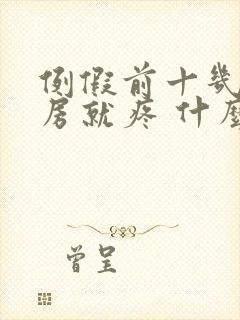 例假前十幾
居就疼 什麼
曾呈